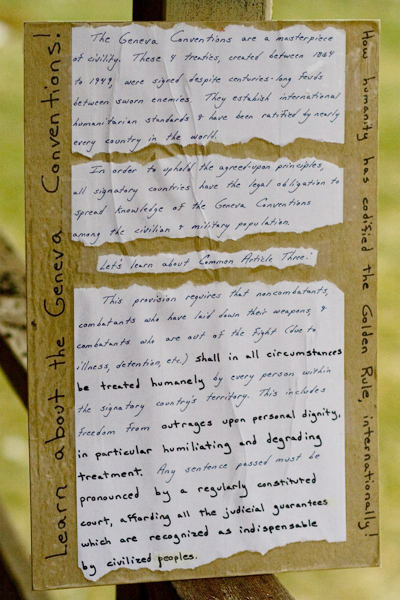 Learn about the Geneva Conventions!
The Geneva Conventions are a masterpiece
of civility. These 4 treaties, created between 1864
to 1949, were signed despite centuries-long feuds
between sworn enemies. They estabish international
humanitarian standards & have been ratified by nearly
every country in the world.
In order to uphold the agreed-upon principles,
all signatory countries have the legal obligation to
spread knowledge of the Geneva Conventions
among the civilian & military population.
Let's learn about Common Article Three:
This provision requires that noncombatants,
combatants who have laid down their weapons, &
combatants who are out of the fight (due to
illness, detention, etc.) shall in all circumstances
be treated humanely by every person within
the signatory country's territory. This includes
freedom from outrages upon personal dignity,
in particular humiliating and degrading
treatment. Any sentence passed must be
pronounced by a regularly constituted
court, affording all the judicial guarantees
which are recognized as indispensable
by civilized peoples.
How humanity has codified the Golden Rule, internationally!